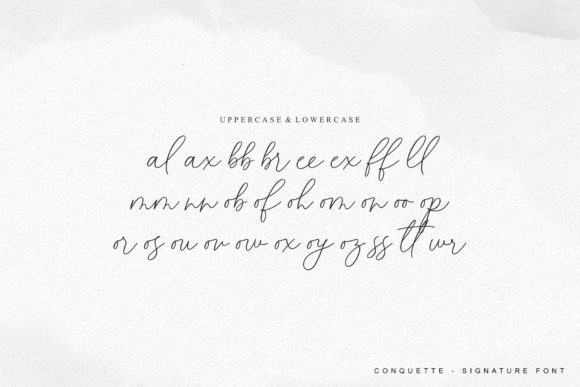 UPPERCASE & LOWERCASE
al ax bb br ee ex ff ll
mm nn ob of oh om on oo op
or os ou ov ow ox oy oz ss tt wr
CONQUETTE - SIGNATURE FONT